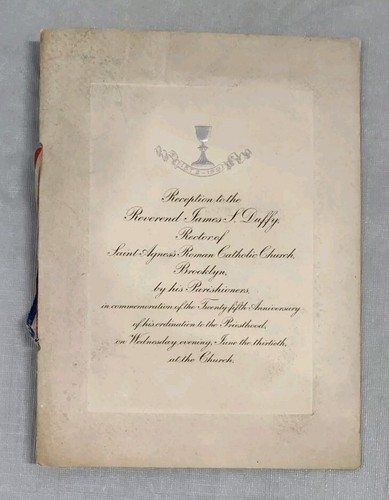 Reception to the
Reverend James S. Duffy,
Rector of
Saint Agnes's Roman Catholic Church,
Brooklyn,
by his Parishioners,
in commemoration of the Twenty fifth Anniversary
of his ordination to the Priesthood,
on Wednesday evening, June the thirtieth,
at the Church.